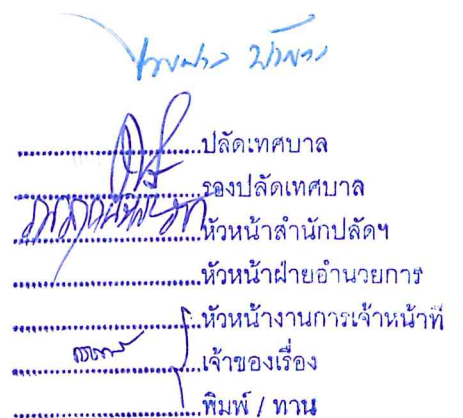 ปลัดเทศบาล
รองปลัดเทศบาล
หัวหน้าสำนักปลัดฯ
หัวหน้าฝ่ายอำนวยการ
หัวหน้างานการเจ้าหน้าที่
เจ้าของเรื่อง
พิมพ์ / ทาน